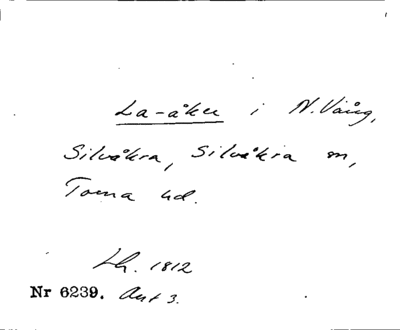 La-åker i N. Vång,
Silvåkra, Silvåkra sn,
Torna hd.
Lh. 1812
Nr 6239. Akt 3.